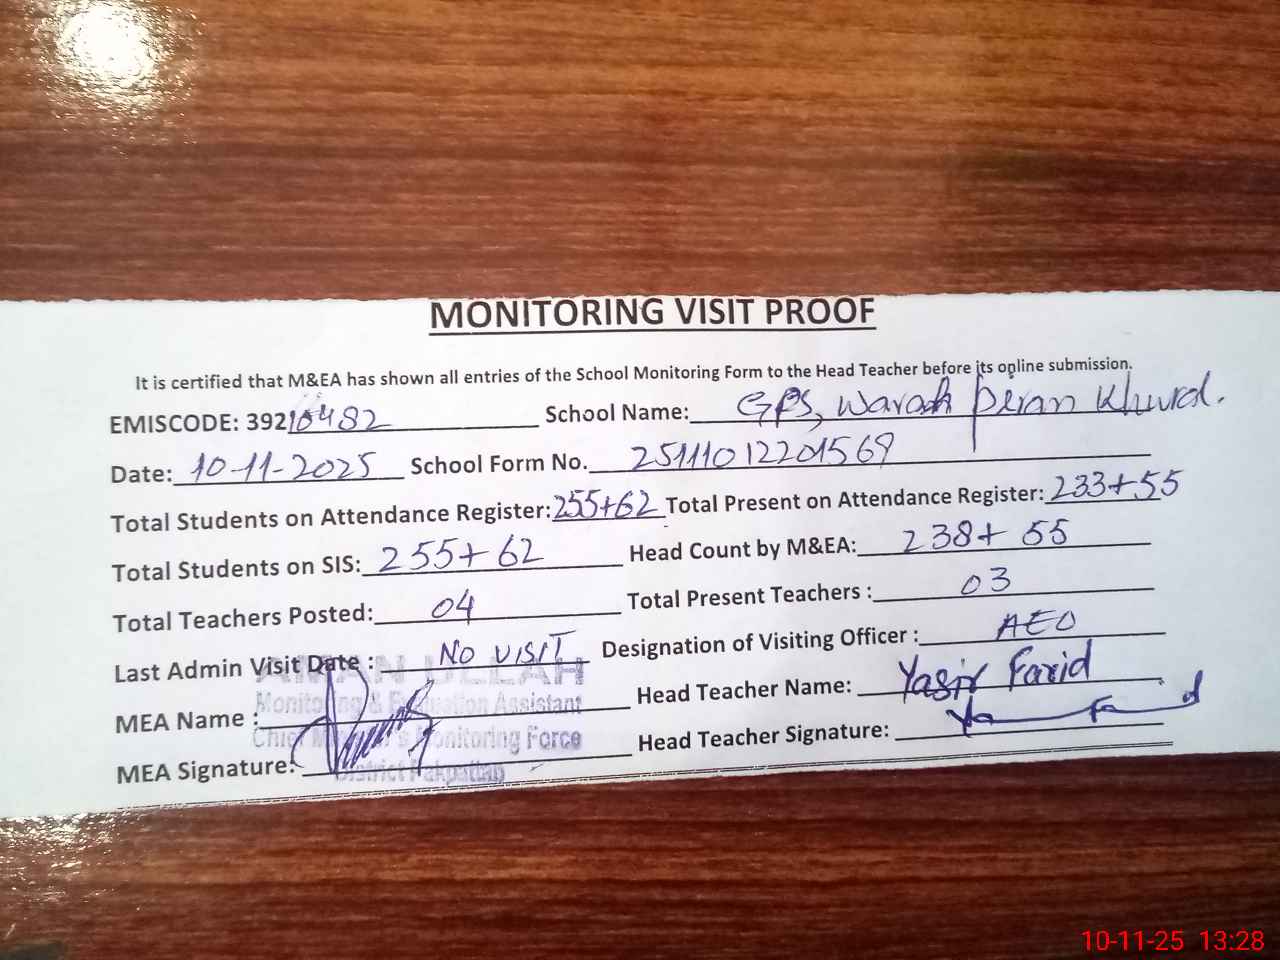 MONITORING VISIT PROOF
It is certified that M&EA has shown all entries of the School Monitoring Form to the Head Teacher before its online submission.
EMISCODE: 39210482 School Name: GPS, Warah Piran Khurd.
Date: 10-11-2025 School Form No. 25111012201569
Total Students on Attendance Register: 255+62 Total Present on Attendance Register: 233+55
Total Students on SIS: 255+62 Head Count by M&EA: 238+55
Total Teachers Posted: 04 Total Present Teachers : 03
Last Admin Visit Date : NO VISIT Designation of Visiting Officer : AEO
MEA Name : Head Teacher Name: Yasir Farid
MEA Signature: Head Teacher Signature:
AMAN ULLAH
Monitoring & Evaluation Assistant
Chief Minister's Monitoring Force
District Pakpattan
10-11-25 13:28